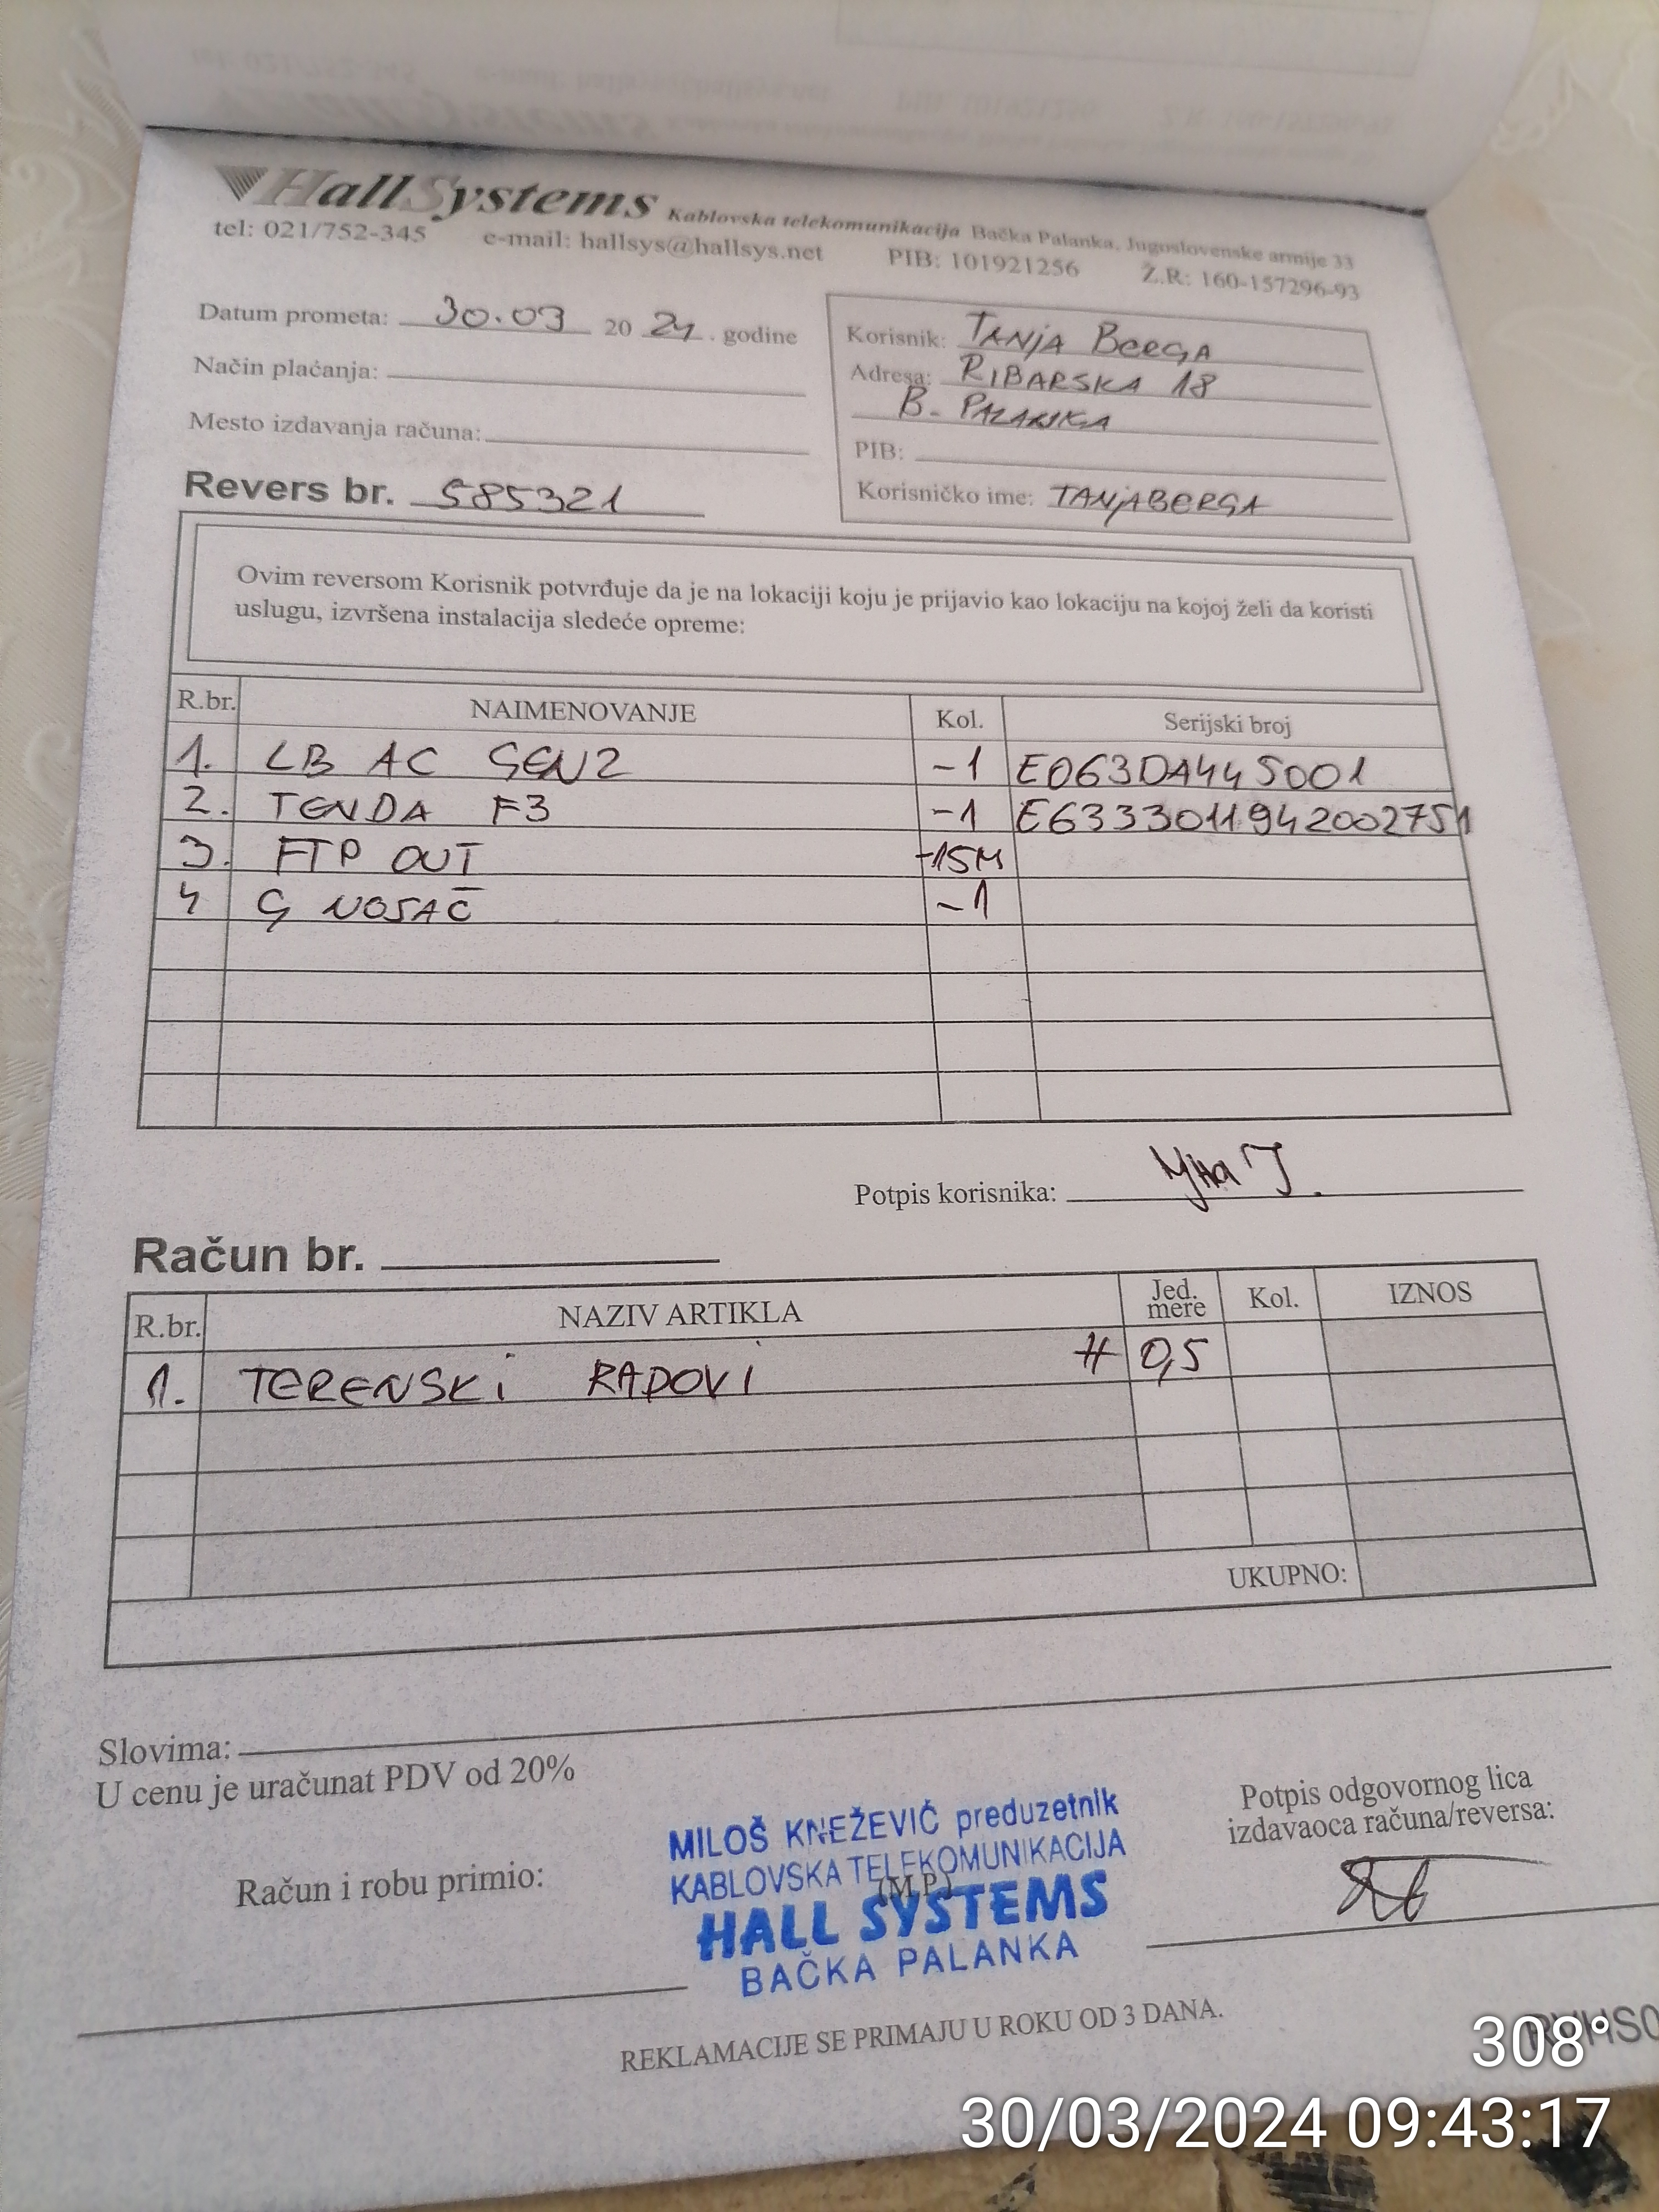 HallSystems Kablovska telekomunikacija Bačka Palanka, Jugoslovenske armije 33
tel: 021/752-345 e-mail: hallsys@hallsys.net PIB: 101921256 Ž.R: 160-157296-93
Datum prometa: 30.03 20 24. godine
Način plaćanja:
Mesto izdavanja računa:
Revers br. 585321
Korisnik: TANJA BERGA
Adresa: RIBARSKA 18
B. PALANKA
PIB:
Korisničko ime: TANJABERGA
Ovim reversom Korisnik potvrđuje da je na lokaciji koju je prijavio kao lokaciju na kojoj želi da koristi
uslugu, izvršena instalacija sledeće opreme:
R.br. NAIMENOVANJE Kol. Serijski broj
1. LB AC GEN2 -1 E063DA445001
2. TENDA F3 -1 E6333011942002751
3. FTP OUT -15M
4 G NOSAČ -1
Potpis korisnika:
Račun br.
R.br. NAZIV ARTIKLA Jed. mere Kol. IZNOS
1. TERENSKI RADOVI # 0,5
UKUPNO:
Slovima:
U cenu je uračunat PDV od 20%
Račun i robu primio:
MILOŠ KNEŽEVIĆ preduzetnik
KABLOVSKA TELEKOMUNIKACIJA
(M.P.)
HALL SYSTEMS
BAČKA PALANKA
Potpis odgovornog lica
izdavaoca računa/reversa:
REKLAMACIJE SE PRIMAJU U ROKU OD 3 DANA.
308°
30/03/2024 09:43:17